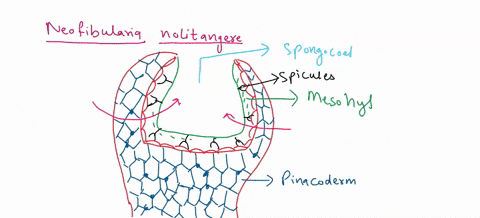 Neofibularia nolitangere
Spongocoel
Spicules
Mesohyl
Pinacoderm